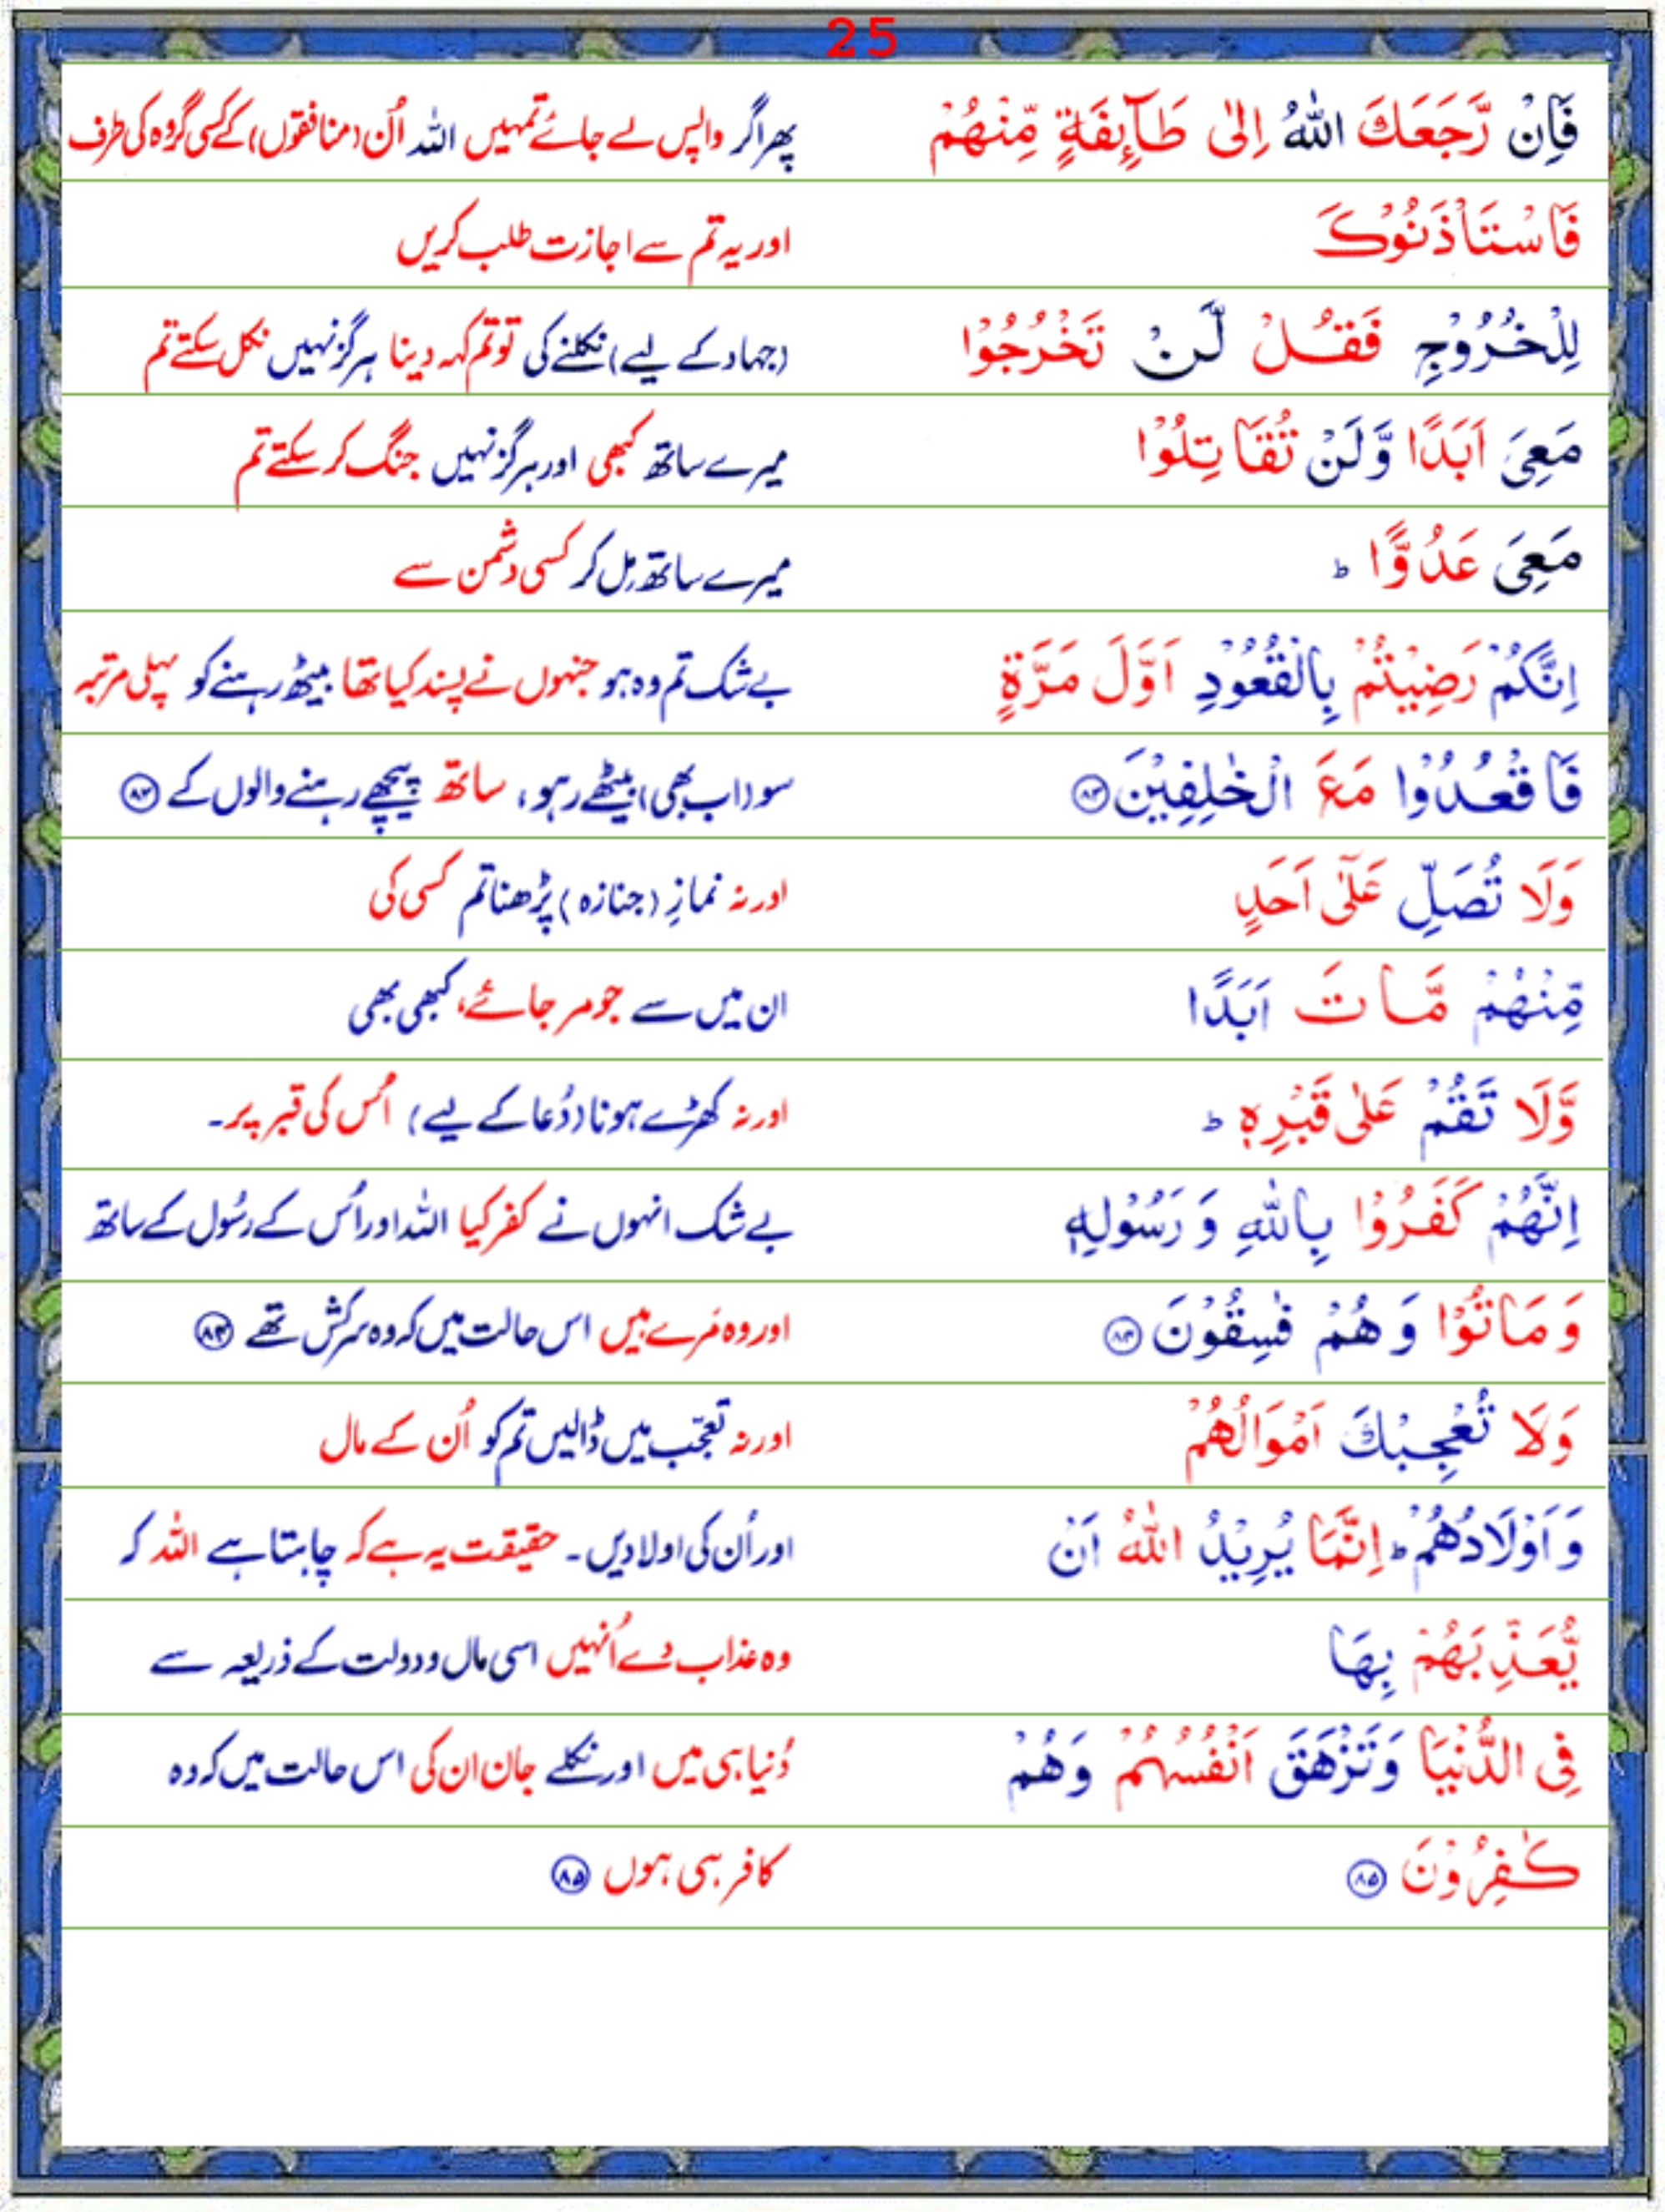 25
فَاِنْ رَّجَعَكَ اللّٰهُ اِلٰى طَآىِٕفَةٍ مِّنْهُمْ پھراگر واپس لے جائے تمہیں اللہ اُن (منافقوں) کے کسی گروہ کی طرف
فَاسْتَاْذَنُوْكَ اور یہ تم سے اجازت طلب کریں
لِلْخُرُوْجِ فَقُلْ لَّنْ تَخْرُجُوْا (جہاد کے لیے) نکلنے کی تو تم کہہ دینا ہرگز نہیں نکل سکتے تم
مَعِىَ اَبَدًا وَّلَنْ تُقَاتِلُوْا میرے ساتھ کبھی اور ہرگز نہیں جنگ کر سکتے تم
مَعِىَ عَدُوًّا ؕ میرے ساتھ مِل کر کسی دشمن سے
اِنَّكُمْ رَضِيْتُمْ بِالْقُعُوْدِ اَوَّلَ مَرَّةٍ بے شک تم وہ ہو جنہوں نے پسند کیا تھا بیٹھ رہنے کو پہلی مرتبہ
فَاقْعُدُوْا مَعَ الْخٰلِفِيْنَ ۸۳ سو (اب بھی) بیٹھے رہو، ساتھ پیچھے رہنے والوں کے ۸۳
وَلَا تُصَلِّ عَلٰٓى اَحَدٍ اور نہ نمازِ (جنازہ) پڑھنا تم کسی کی
مِّنْهُمْ مَّاتَ اَبَدًا ان میں سے جو مر جائے، کبھی بھی
وَّلَا تَقُمْ عَلٰى قَبْرِهٖ ؕ اور نہ کھڑے ہونا (دُعا کے لیے) اُس کی قبر پر۔
اِنَّهُمْ كَفَرُوْا بِاللّٰهِ وَ رَسُوْلِهٖ بے شک انہوں نے کفر کیا اللہ اور اُس کے رسُول کے ساتھ
وَ مَاتُوْا وَ هُمْ فٰسِقُوْنَ ۸۴ اور وہ مَرے ہیں اس حالت میں کہ وہ سرکش تھے ۸۴
وَلَا تُعْجِبْكَ اَمْوَالُهُمْ اور نہ تعجّب میں ڈالیں تم کو اُن کے مال
وَ اَوْلَادُهُمْ ؕ اِنَّمَا يُرِيْدُ اللّٰهُ اَنْ اور اُن کی اولادیں۔ حقیقت یہ ہے کہ چاہتا ہے اللہ کہ
يُّعَذِّبَهُمْ بِهَا وہ عذاب دے اُنہیں اسی مال و دولت کے ذریعہ سے
فِى الدُّنْيَا وَتَزْهَقَ اَنْفُسُهُمْ وَهُمْ دُنیا ہی میں اور نکلے جان ان کی اس حالت میں کہ وہ
كٰفِرُوْنَ ۸۵ کافر ہی ہوں ۸۵